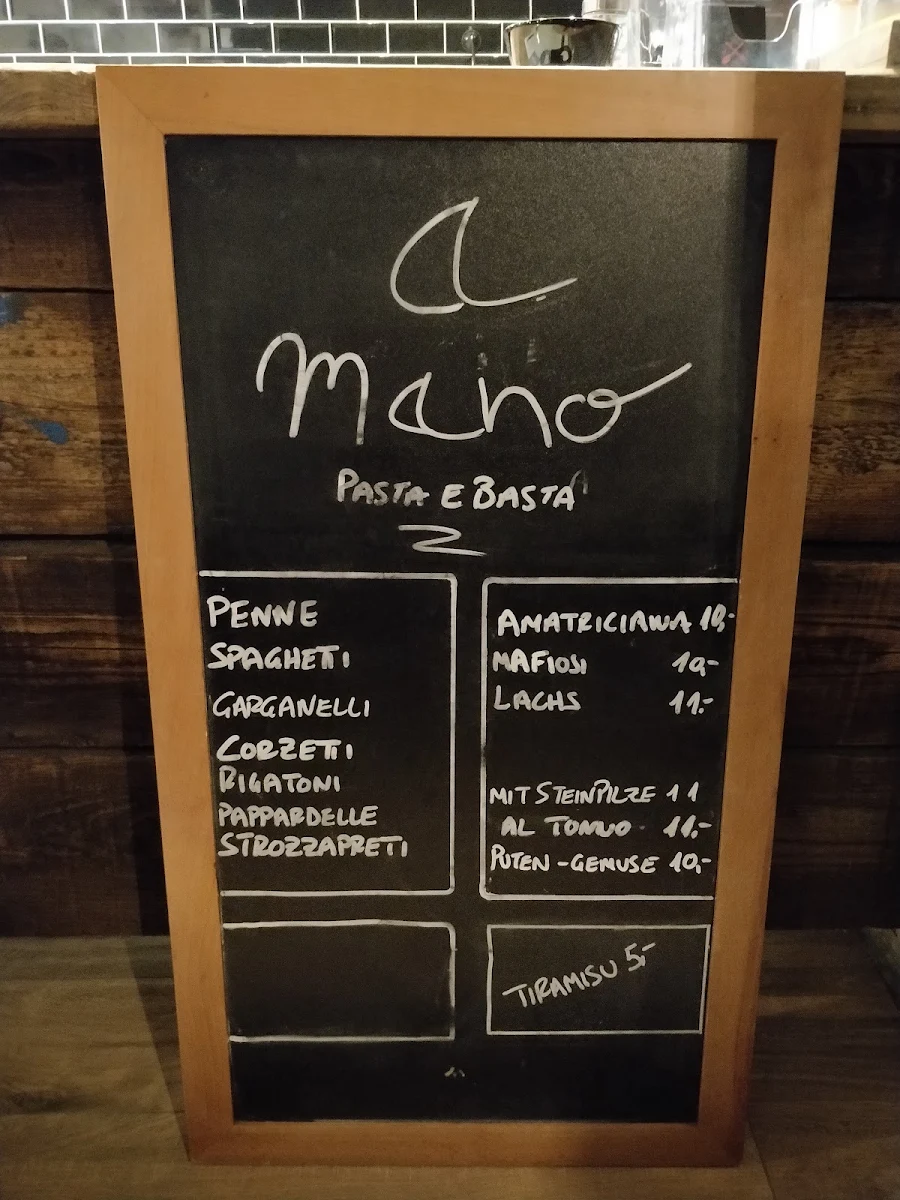 a
mano
PASTA E BASTA
PENNE
SPAGHETTI
GARGANELLI
CORZETTI
RIGATONI
PAPPARDELLE
STROZZAPRETI
AMATRICIANA 10,-
MAFIOSI 10,-
LACHS 11.-
MIT STEINPILZE 11
AL TONNO 11,-
PUTEN-GEMUSE 10,-
TIRAMISU 5,-